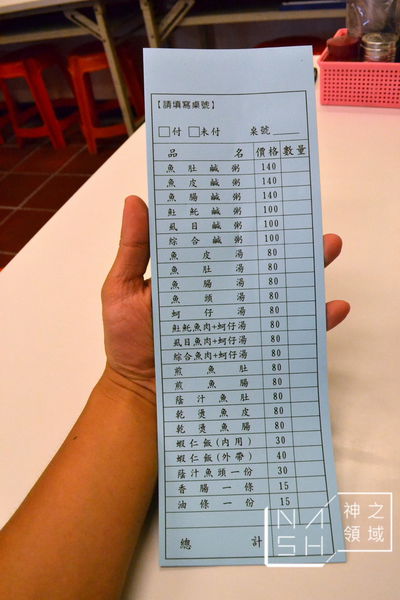 【請填寫桌號】
□付 □未付 桌號____
品名 價格 數量
魚肚鹹粥 140
魚皮鹹粥 140
魚腸鹹粥 140
魠魠鹹粥 100
虱目鹹粥 100
綜合鹹粥 100
魚皮湯 80
魚肚湯 80
魚腸湯 80
魚頭湯 80
蚵仔湯 80
魠魠魚肉+蚵仔湯 80
虱目魚肉+蚵仔湯 80
綜合魚肉+蚵仔湯 80
煎魚肚 80
煎魚腸 80
蔭汁魚肚 80
乾燙魚皮 80
乾燙魚腸 80
蝦仁飯(內用) 30
蝦仁飯(外帶) 40
蔭汁魚頭一份 30
香腸一條 15
油條一份 15
總計
NASH 神之領域